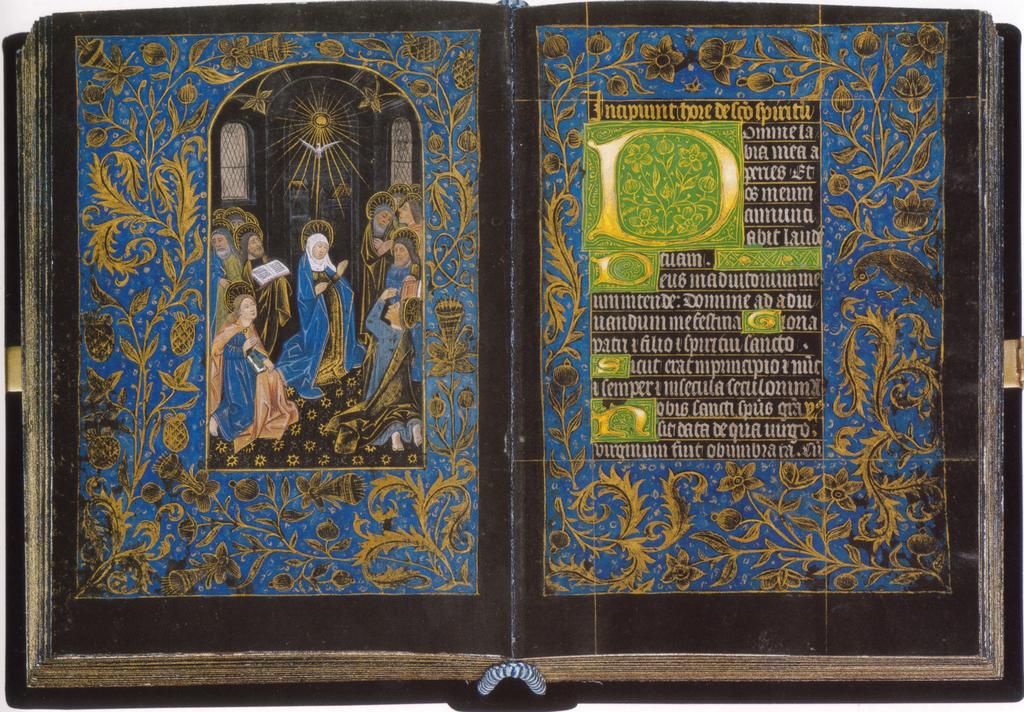 Incipiunt hore de sco spiritu
Domine la
bia mea a
peries Et
os meum
annunti
abit laude
tuam.
Deus in adiutorium me
um intende: Domine ad adiu
uandum me festina Gloria
patri & filio & spiritui sancto.
Sicut erat in principio & nuc
& semper & in secula seculorum A
Nobis sancti spus gra
sit data de qua uirgo
virginum fuit obumbrata. Cu